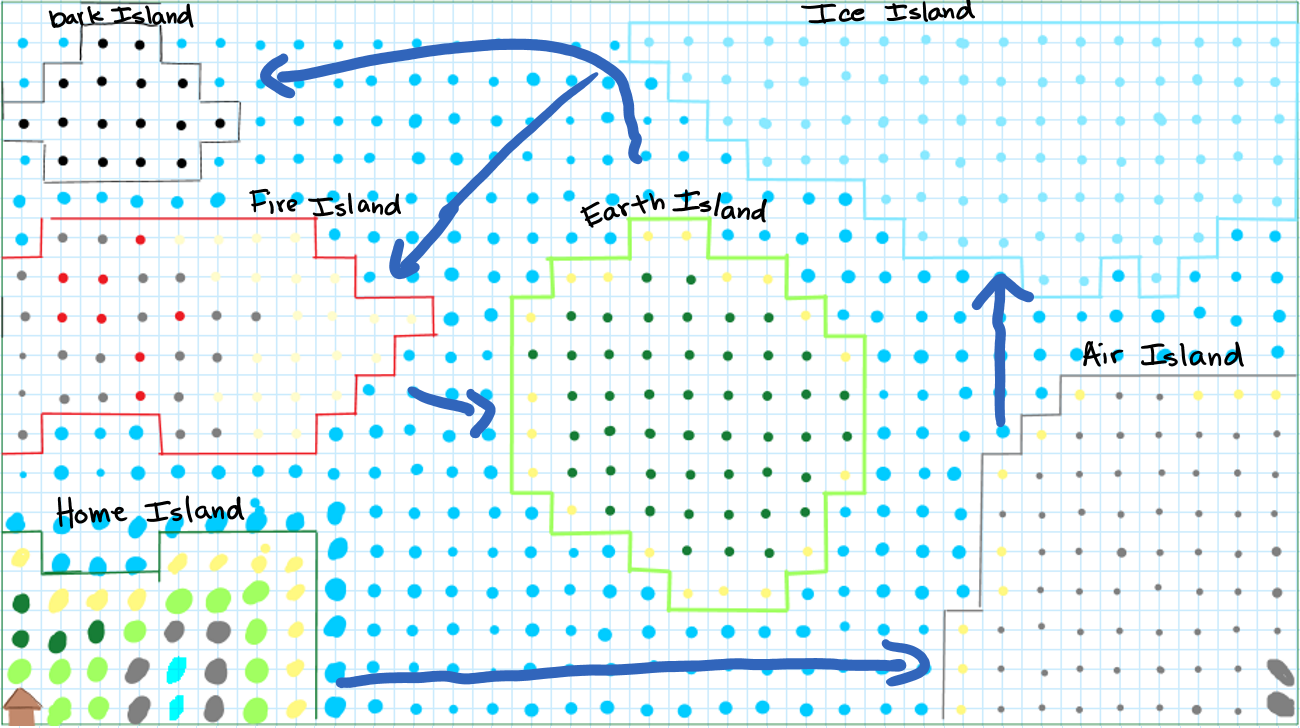 Dark Island
Ice Island
Fire Island
Earth Island
Air Island
Home Island